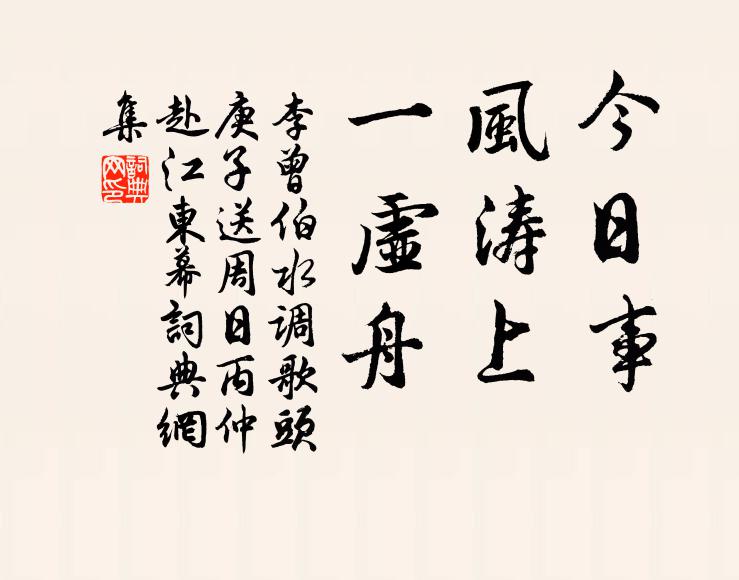 今日事
風涛上
一虛舟
李曾伯水调歌頭
庚子送周日丙仲
赴江東幕詞典網
集
詞典网印